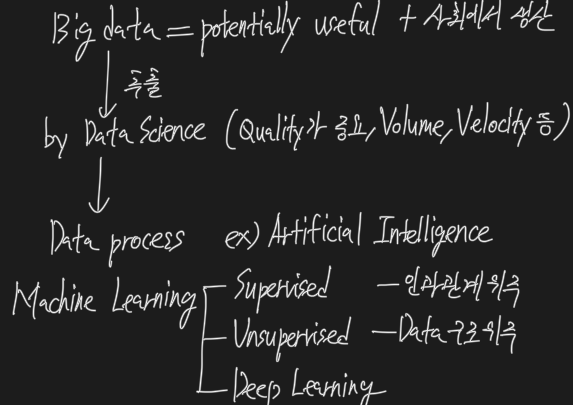 Big data = potentially useful + 사회에서 생산
추출
by Data Science (Quality가 중요, Volume, Velocity 등)
Data process ex) Artificial Intelligence
Machine Learning
Supervised - 인과관계 위주
Unsupervised - Data 구조 위주
Deep Learning